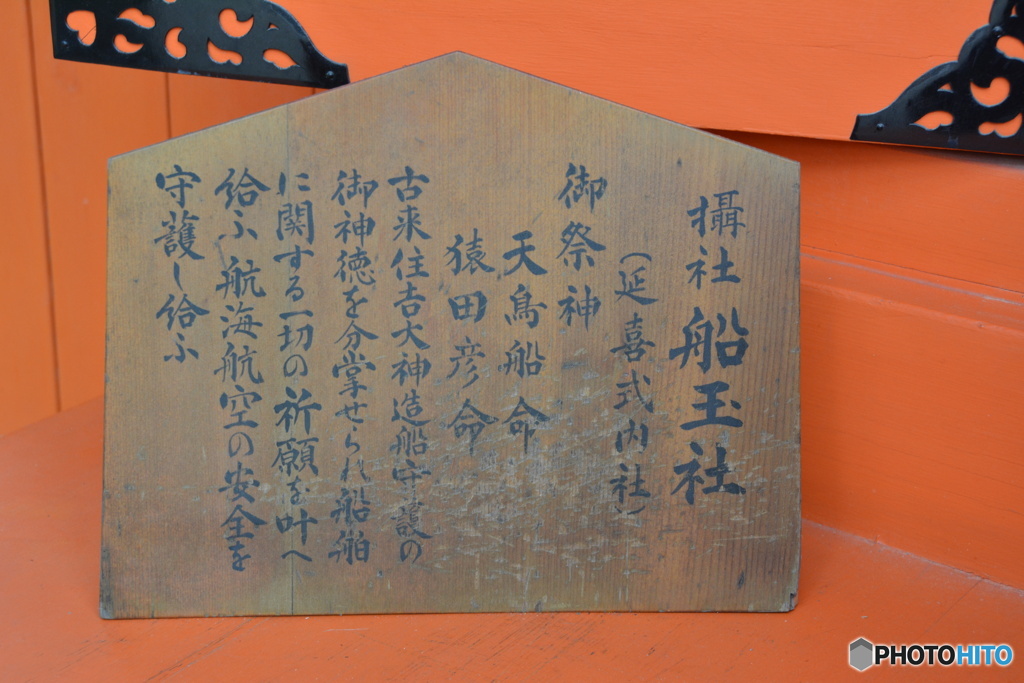 攝社 船玉社
(延喜式内社)
御祭神
天鳥船命
猿田彦命
古来住吉大神造船守護の
御神徳を分掌せられ船舶
に関する一切の祈願を叶へ
給ふ航海航空の安全を
守護し給ふ
PHOTOHITO